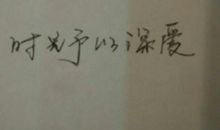 时光予以深爱